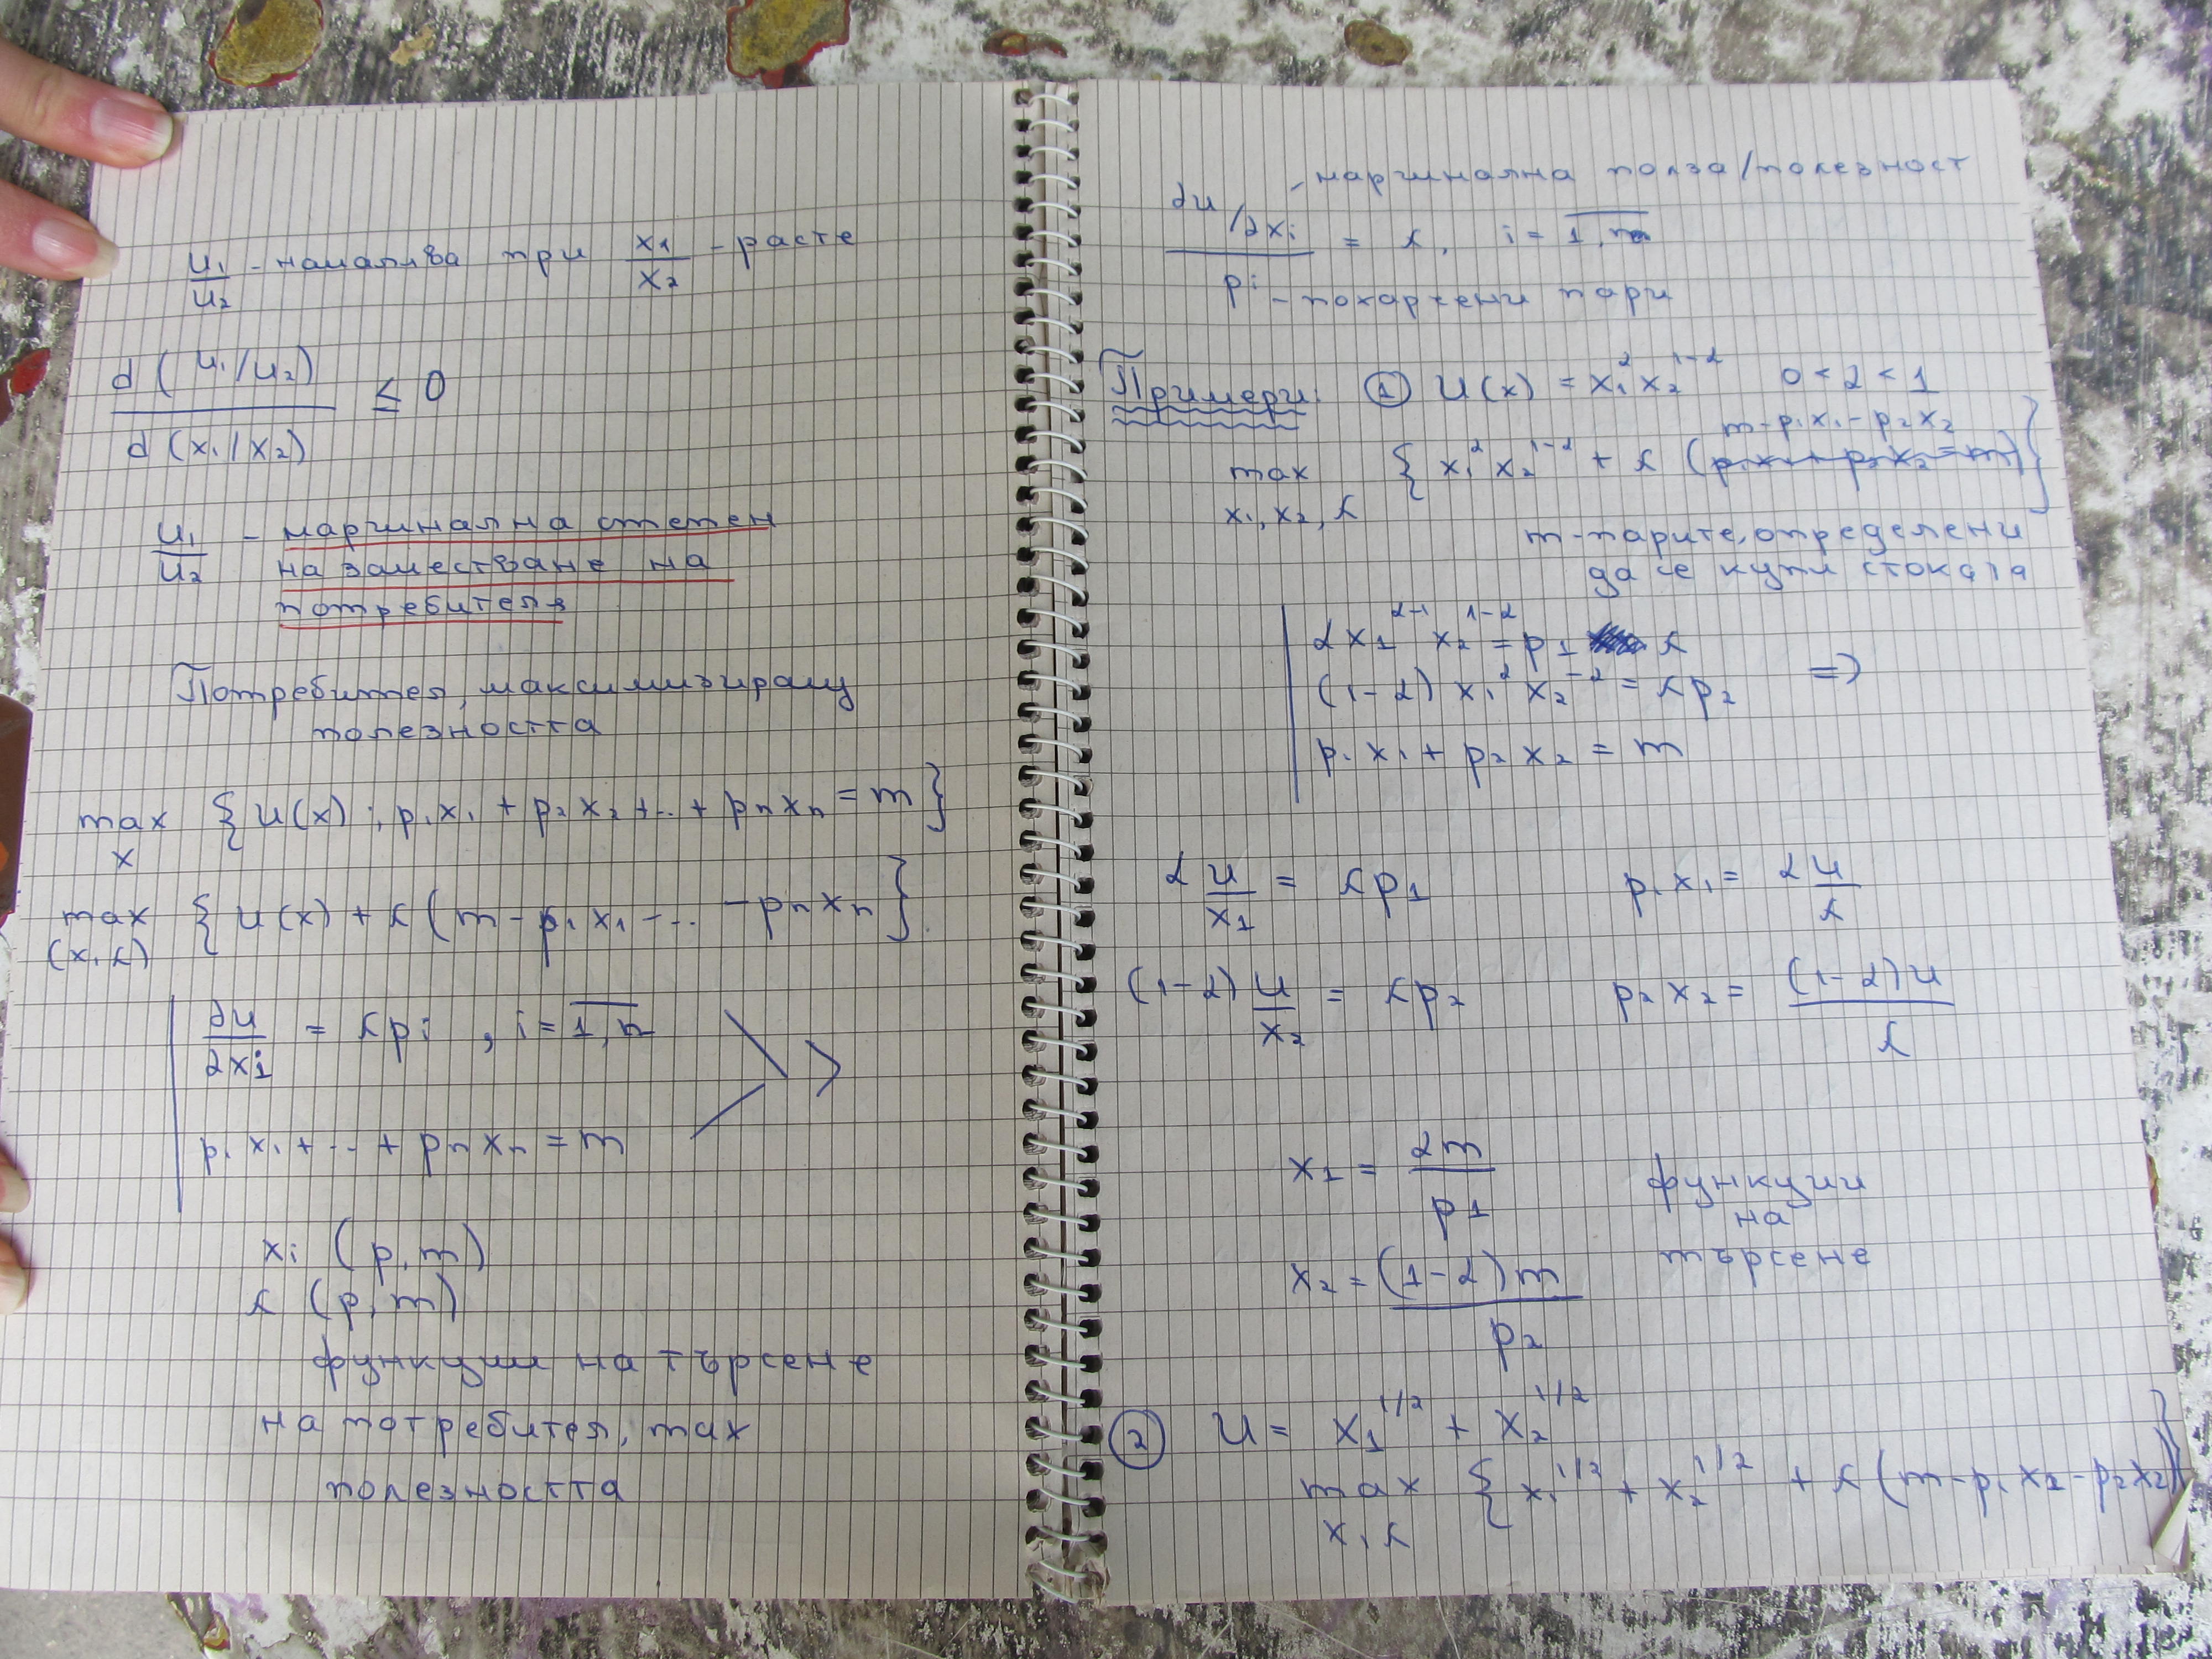 u₁/u₂ - намалява при x₁/x₂ - расте
d(u₁/u₂) / d(x₁/x₂) ≤ 0
u₁/u₂ - маргинална степен
на заместване на
потребителя
Потребител, максимизиращ
полезността
max {u(x); p₁x₁ + p₂x₂ + .. + pₙxₙ = m}
x
max {u(x) + λ(m - p₁x₁ - ... - pₙxₙ}
(x, λ)
∂u/∂xi = λpi , i = 1,n
p₁x₁ + ... + pₙxₙ = m
xi (p, m)
λ (p, m)
функции на търсене
на потребителя, max
полезността
- маргинална полза/полезност
∂u/∂xi / pi = λ, i = 1,n
- похарчени пари
Примери: ① u(x) = x₁^α x₂^(1-α) 0 < α < 1
m - p₁x₁ - p₂x₂
max {x₁^α x₂^(1-α) + λ (p₁x₁ + p₂x₂ = m)}
x₁, x₂, λ
m - парите, определени
да се купи стоката
αx₁^(α-1) x₂^(1-α) = p₁ λ
(1-α) x₁^α x₂^(-α) = λp₂ =>
p₁x₁ + p₂x₂ = m
α u/x₁ = λp₁ p₁x₁ = αu/λ
(1-α) u/x₂ = λp₂ p₂x₂ = (1-α)u/λ
x₁ = αm/p₁ функции
на
търсене
x₂ = (1-α)m/p₂
② u = x₁^(1/2) + x₂^(1/2)
max {x₁^(1/2) + x₂^(1/2) + λ(m - p₁x₂ - p₂x₂)}
x, λ